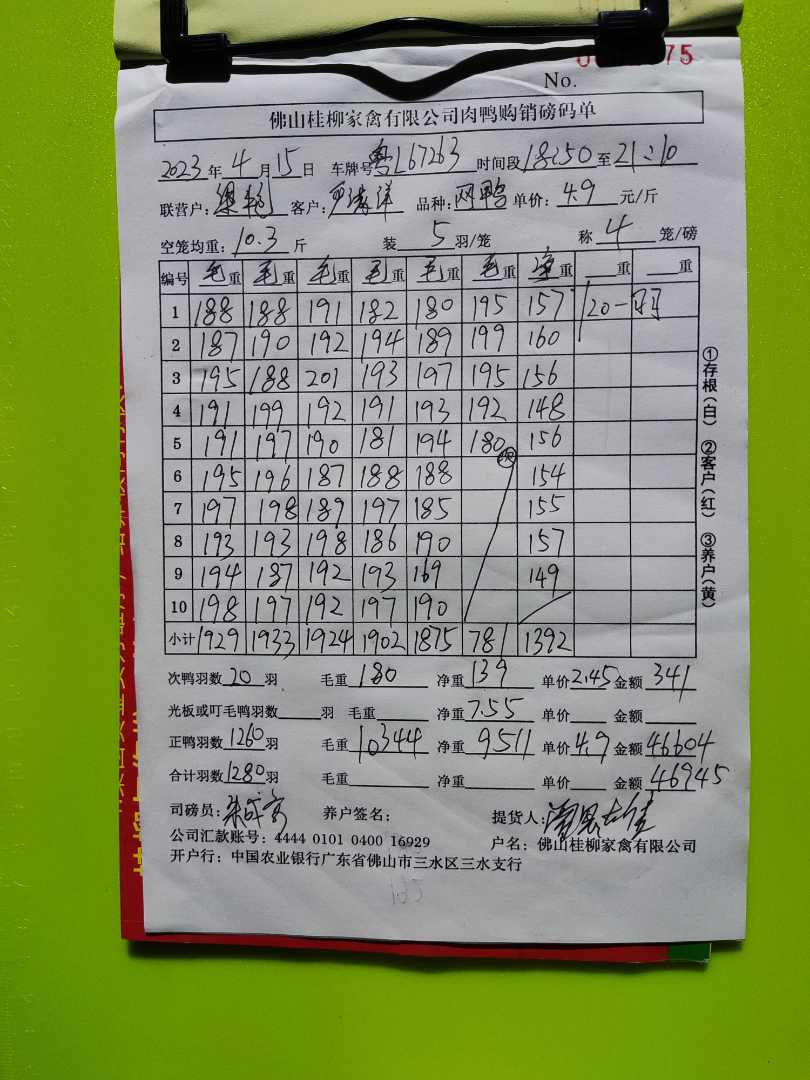 75
No.
佛山桂柳家禽有限公司肉鸭购销磅码单
2023年4月15日 车牌号粤L67263 时间段18:50至21:10
联营户: 客户: 品种: 网鸭 单价: 4.9 元/斤
空笼均重: 10.3 斤 装 5 羽/笼 称 4 笼/磅
编号 毛重 毛重 毛重 毛重 毛重 毛重 净重 重 重
1 188 188 191 182 180 195 157 120-
2 187 190 192 194 189 199 160
3 195 188 201 193 197 195 156
4 191 199 192 191 193 192 148
5 191 197 190 181 194 180 次 156
6 195 196 187 188 188 154
7 197 198 189 197 185 155
8 193 193 198 186 190 157
9 194 187 192 193 169 149
10 198 197 192 197 190
小计 1929 1933 1924 1902 1875 781 1392
次鸭羽数 20 羽 毛重 180 净重 139 单价 2.45 金额 341
光板或叮毛鸭羽数 羽 毛重 净重 7.55 单价 金额
正鸭羽数 1260 羽 毛重 10344 净重 9511 单价 4.9 金额 46604
合计羽数 1280 羽 毛重 净重 单价 金额 46945
司磅员: 养户签名: 提货人:
公司汇款账号: 4444 0101 0400 16929 户名: 佛山桂柳家禽有限公司
开户行: 中国农业银行广东省佛山市三水区三水支行
①存根(白) ②客户(红) ③养户(黄)